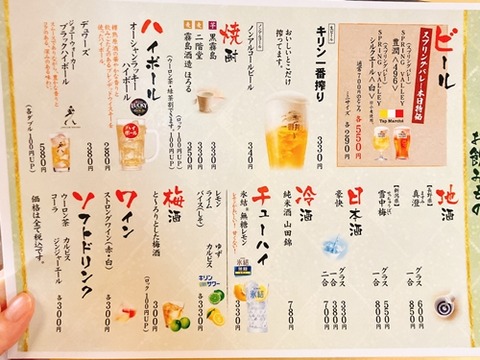 ビール
スプリングバレー 本日特価
SPRING VALLEY
豊潤〈496〉
SPRING VALLEY
シルクエール〈白〉
通常700円のところ
各550
ミニサイズ
各290
Tap Marché
キリン一番搾り
おいしいとこだけ
搾ってます。
330
ノンアルコールビール
340
焼酎
黒霧島
二階堂
霧島酒造 ほろる
330
350
350
(ロック100円UP)
(ウーロン茶・緑茶割できます。100円UP)
ハイボール
オーシャンラッキー
ハイボール
380
デュワーズ
380
ジョニーウォーカー
ブラックハイボール
580
(各ダブル100円UP)
地酒
真澄
グラス
600
一合
850
雪中梅
グラス
850
一合
日本酒
豪快
グラス
330
一合
380
二合
700
冷酒
純米酒 山田錦
780
チューハイ
氷結®無糖レモン
300
レモン
ライム
バイス(しそ)
ゆず
カルピス
キリン
サワー
各330
梅酒
とーろりとした梅酒
300
(ロック100円UP)
ワイン
ストロングワイン(赤・白)
各300
ソフトドリンク
ウーロン茶
コーラ
カルピス
ジンジャーエール
各300
価格は全て税込です。